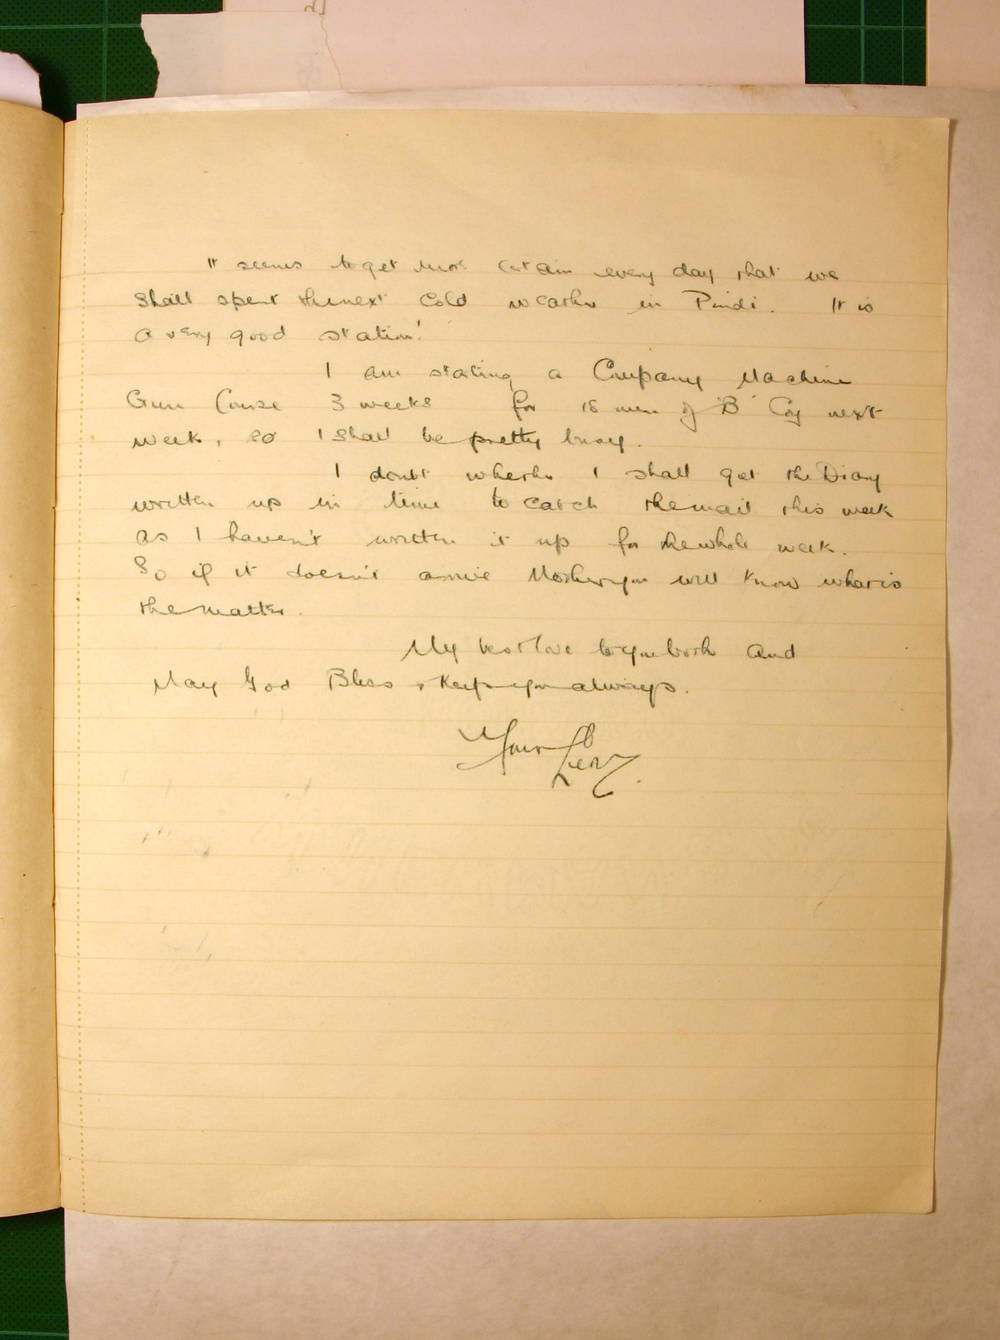 It seems to get more certain every day that we
shall spent the next cold weather in Pindi. It is
a very good station!
I am starting a Company Machine
Gun Course 3 weeks for 18 men of 'B' Coy next
week, so I shall be pretty busy.
I doubt whether I shall get the Diary
written up in time to catch the mail this week
as I haven't written it up for the whole week.
So if it doesn't arrive Mother you will know what is
the matter.
My best love to you both and
May God Bless & Keep you always.
Your